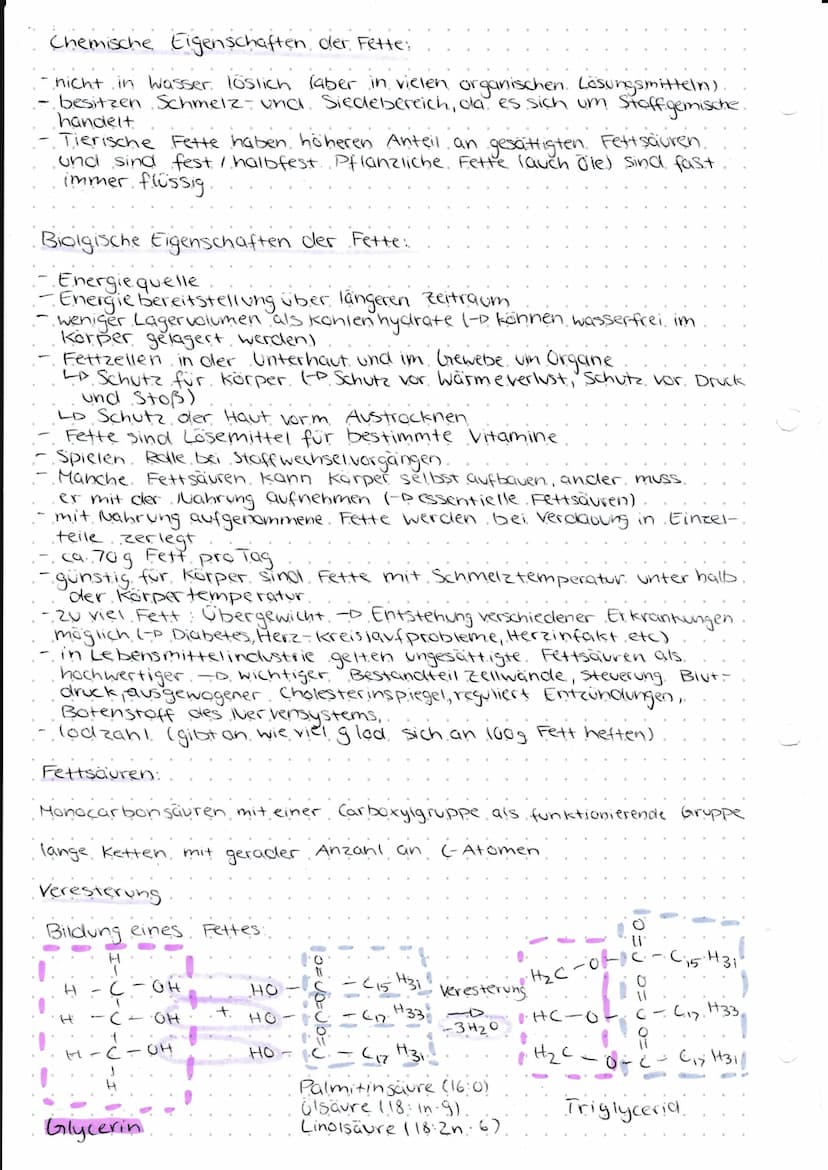 Chemische Eigenschaften der Fette:
- nicht in Wasser löslich (aber in vielen organischen Lösungsmitteln)
- besitzen Schmelz- und Siedebereich, da es sich um Stoffgemische
handelt
- Tierische Fette haben höheren Anteil an gesättigten Fettsäuren
und sind fest / halbfest. Pflanzliche Fette (auch Öle) sind fast
immer flüssig
Biolgische Eigenschaften der Fette:
- Energiequelle
- Energiebereitstellung über längeren Zeitraum
- weniger Lagervolumen als Kohlenhydrate (→ können wasserfrei im
Körper gelagert werden)
- Fettzellen in der Unterhaut und im Gewebe um Organe
↳ Schutz für Körper (→ Schutz vor Wärmeverlust, Schutz vor Druck
und Stoß)
↳ Schutz der Haut vorm Austrocknen
- Fette sind Lösemittel für bestimmte Vitamine
- Spielen Rolle bei Stoffwechselvorgängen
- Manche Fettsäuren kann Körper selbst aufbauen, ander muss
er mit der Nahrung aufnehmen (→ essentielle Fettsäuren)
- mit Nahrung aufgenommene Fette werden bei Verdauung in Einzel-
teile zerlegt
- ca. 70g Fett pro Tag
- günstig für Körper sind Fette mit Schmelztemperatur unterhalb
der Körpertemperatur
- zu viel Fett: Übergewicht → Entstehung verschiedener Erkrankungen
möglich (→ Diabetes, Herz-Kreislaufprobleme, Herzinfakt etc)
- in Lebensmittelindustrie gelten ungesättigte Fettsäuren als
hochwertiger → wichtiger Bestandteil Zellwände, Steuerung Blut-
druck, ausgewogener Cholesterinspiegel, reguliert Entzündungen,
Botenstoff des Nervensystems,
- Iodzahl (gibt an wie viel g Iod sich an 100g Fett heften)
Fettsäuren:
Monocarbonsäuren mit einer Carboxylgruppe als funktionierende Gruppe
lange Ketten mit gerader Anzahl an C-Atomen
Veresterung
Bildung eines Fettes
H
H - C - OH
H - C - OH
H - C - OH
H
Glycerin
+
O
HO - C - C15 H31
O
HO - C - C17 H33
O
HO - C - C17 H31
Palmitinsäure (16:0)
Ölsäure (18:1n-9)
Linolsäure (18:2n-6)
Veresterung
→
-3H2O
O
H2C - O - C - C15 H31
O
HC - O - C - C17 H33
O
H2C - O - C - C17 H31
Triglycerid